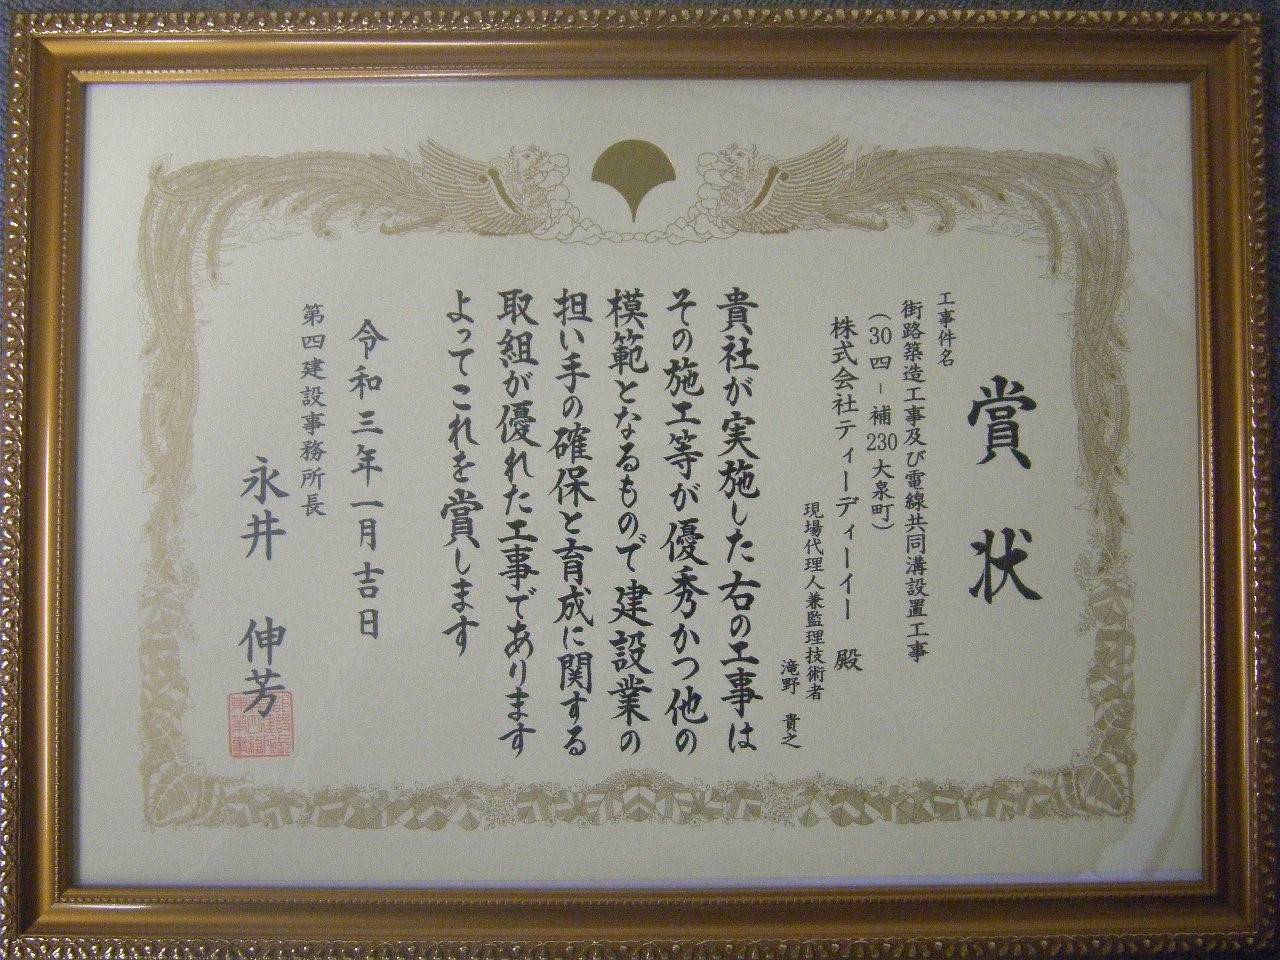 賞状
工事件名
街路築造工事及び電線共同溝設置工事
(30四-補230大泉町)
株式会社ティーディーイー 殿
現場代理人兼監理技術者
滝野 貴之
貴社が実施した右の工事は
その施工等が優秀かつ他の
模範となるもので建設業の
担い手の確保と育成に関する
取組が優れた工事であります
よってこれを賞します
令和三年一月吉日
第四建設事務所長
永井 伸芳